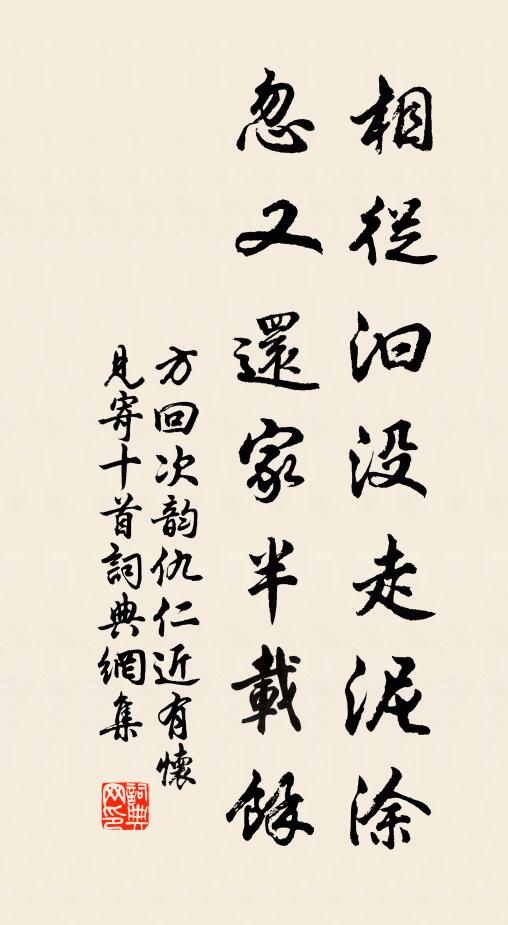 相從汩没走泥涂
忽又還家半載餘
方回次韵仇仁近有懷
見寄十首詞典網集
詞典网印